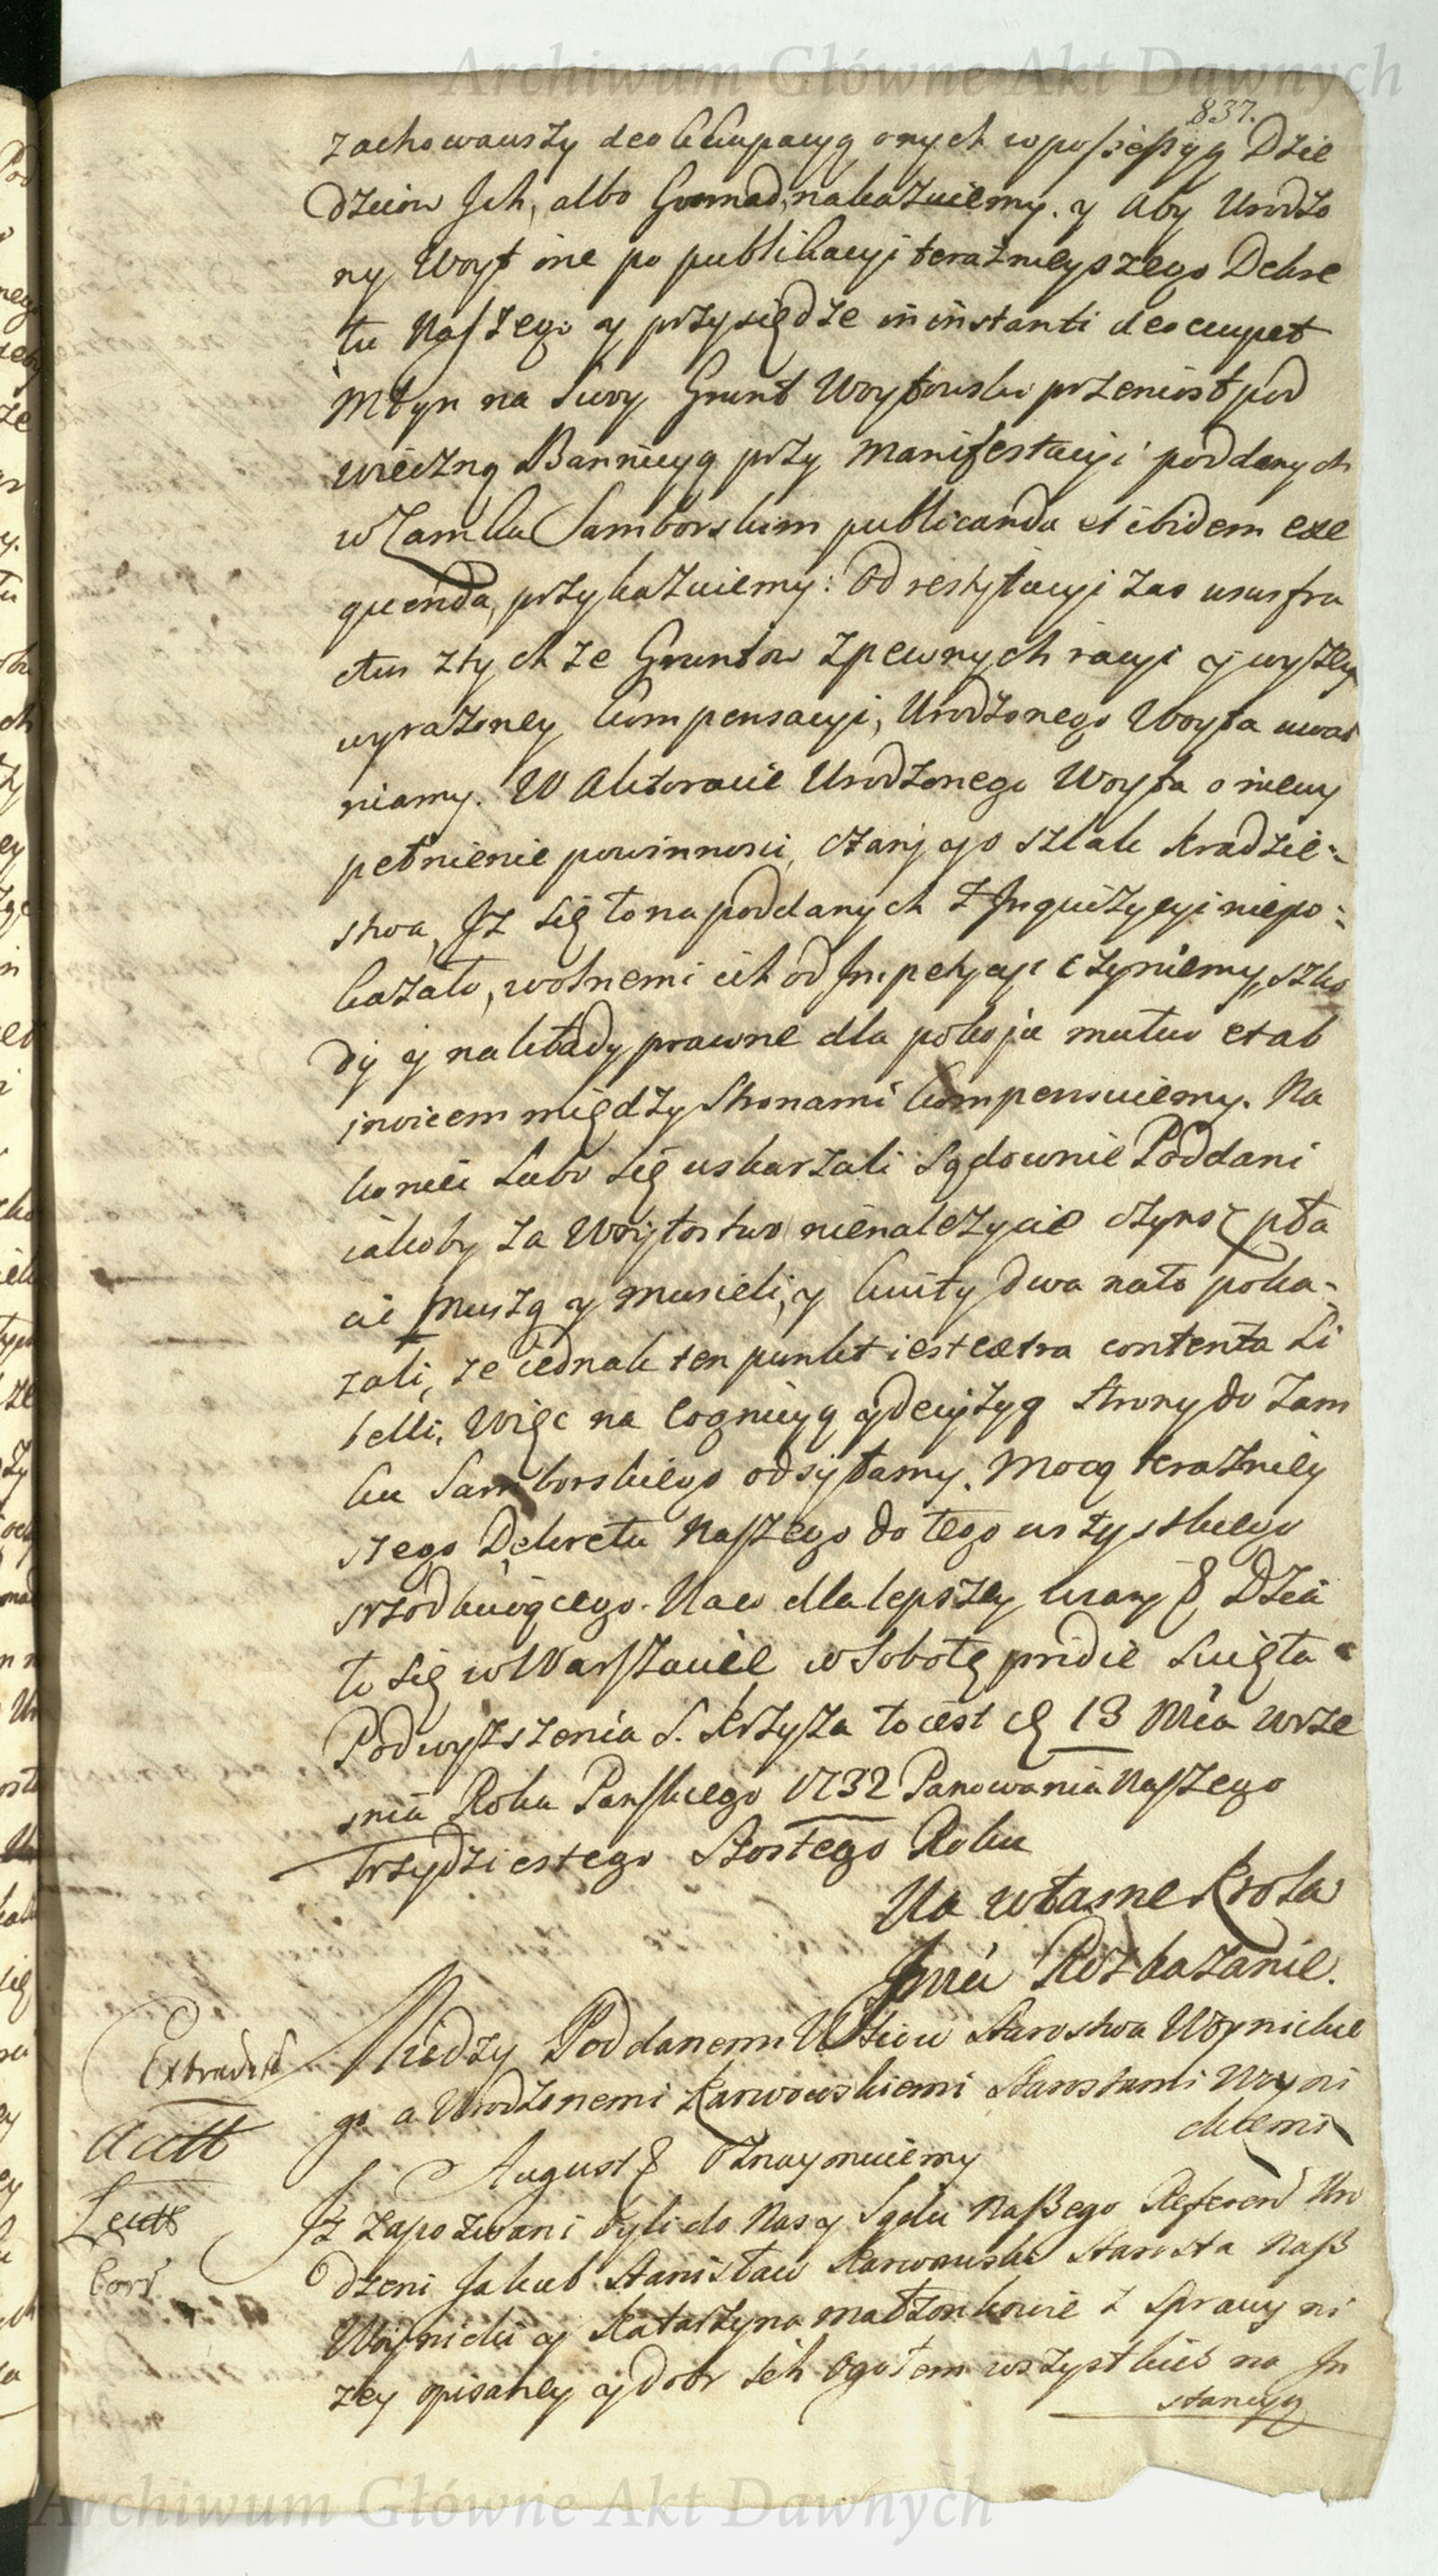 Archiwum Główne Akt Dawnych
837.
zachowawszy deokkupacyą onych w possessyą Dzie
dziców Ich, albo Gromad, nakazuiemy. y aby Urodzo
ny Woyt one po publikacyi teraznieyszego Dekre
tu Naszego y przysiędze in instanti deocupet
Młyn na swoy Grunt Woytowski przeniosł pod
wieczną Bannicyą przy manifestacyi poddanych
w Zamku Samborskim publicanda et ibidem exe
quenda, przykazuiemy: Od restytucyi zas ususfru
ctus z tychze Gruntow z pewnych racyi y wyżey
wyrażoney kompensacyi, Urodzonego Woyta uwal
niamy. W Aktoracie Urodzonego Woyta o niewy
pełnienie powinnosci, czary y o szlak kradzie-
stwa, Iz się to na poddanych z Inquizycyi niepo-
kazało, wolnemi ich od Impetycyi czyniemy, szko
dy y nakłady prawne dla pokoju mutuo et ab
invicem między Stronami kompensuiemy. Na
koniec lubo się uskarzali sądownie Poddani
iakoby za Woytostwo nienależycie czynsz pła
cić muszą y musieli, y kwity dwa na to poka-
zali, ze iednak ten punkt iest extra contenta Li
belli, Więc na cognicyą y decyzyą Strony do Zam
ku Samborskiego odsyłamy. Mocą terazniey
szego Dekretu Naszego do tego wszystkiego
srzodkuiącego. Na co dla lepszey wiary & Dzia
ło się w Warszawie w Sobotę pridie Swięta
Podwyższenia S. Krzyża to iest d 13 Mca wrze
snia Roku Panskiego 1732 Panowania Naszego
Trzydziestego Szostego Roku
Na własne Krola
Jmci Rozkazanie.
Między Poddanemi Wsiow Starostwa Woynickie
go a Urodzonemi Karwowskiemi Starostami Woyni
ckiemi
Extradit
Actt
Lectt
Corr
August & Oznaymuiemy
Iz zapozwani byli do Nas y Sądu Naszego Referend Uro
dzeni Jakub Stanisław Karwowski Starosta Nasz
Woynicki y Katarzyna małzonkowie z Sprawy ni
zey opisaney y dobr Ich ogołem wszystkich na In
stancyą
Archiwum Główne Akt Dawnych